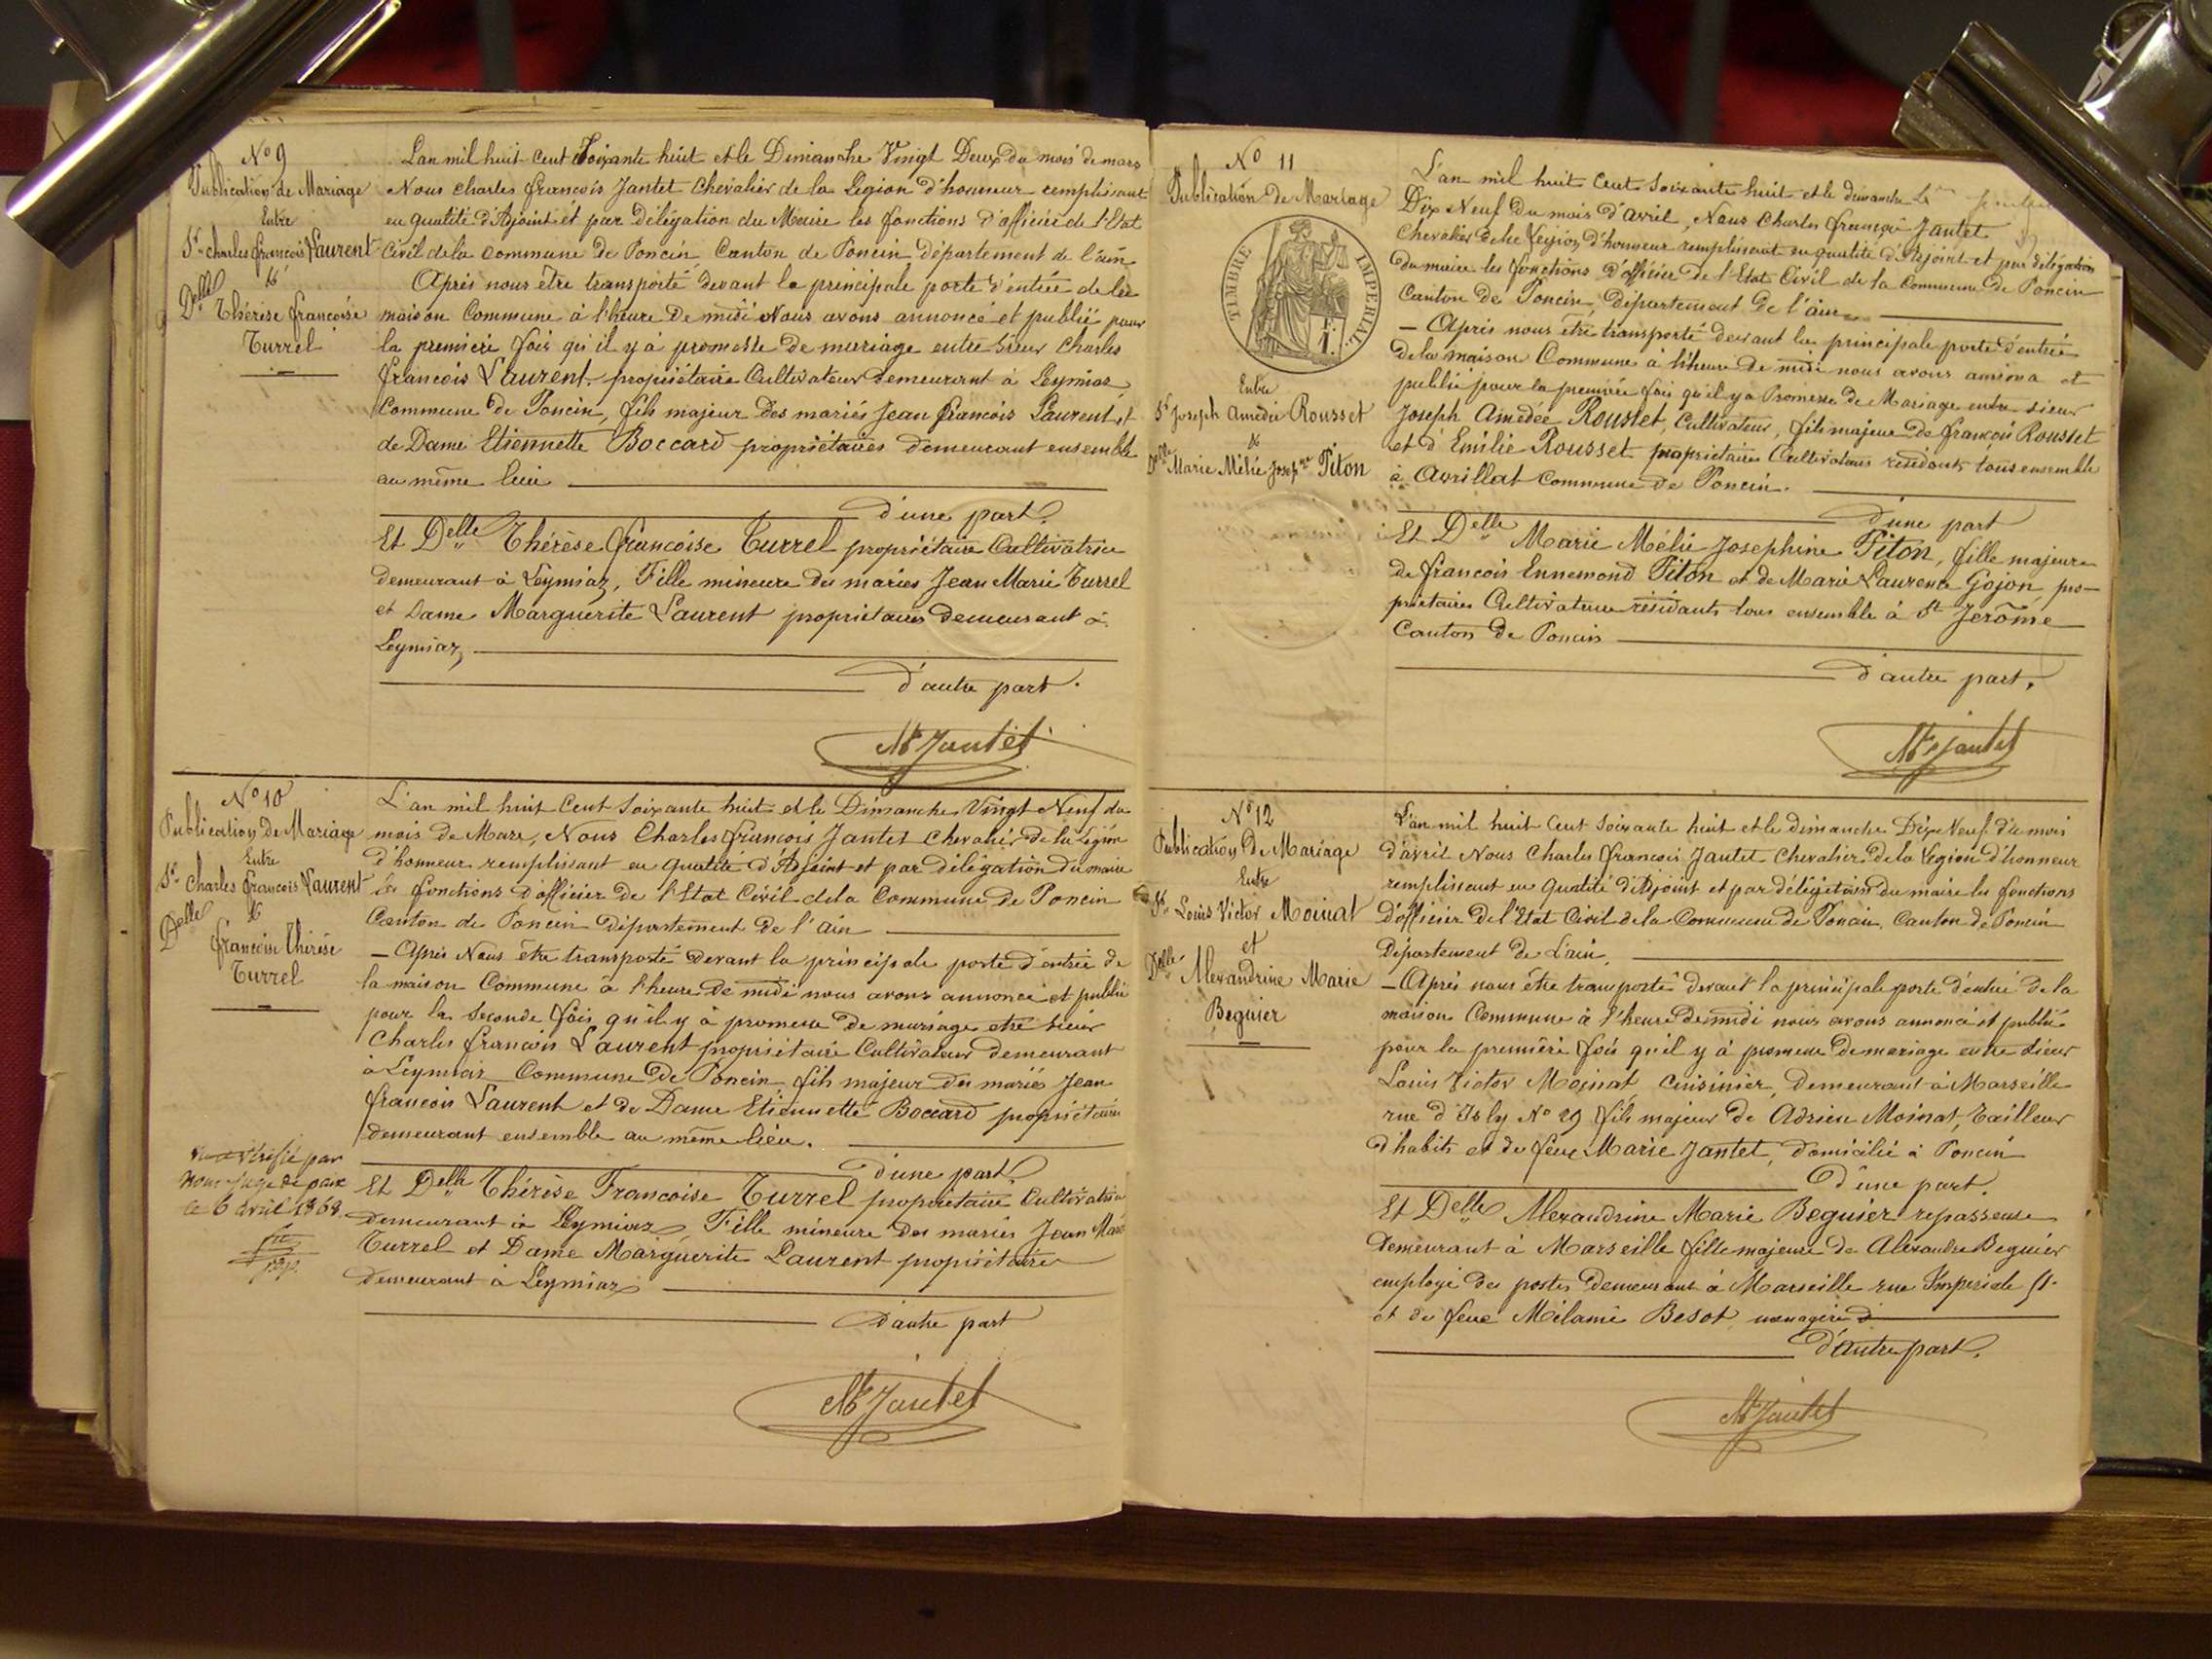 No 9
Publication de Mariage
Entre
Sr Charles françois Laurent
&
Delle Thérèse françoise
Turrel
L'an mil huit cent soixante huit et le Dimanche Vingt Deux du mois de mars
Nous Charles françois Jantet Chevalier de la Légion d'honneur remplissant
en qualité d'Adjoint et par délégation du Maire les fonctions d'officier de l'Etat
Civil de la Commune de Poncin Canton de Poncin Département de l'ain
Après nous être transporté devant la principale porte d'entrée de la
maison Commune à l'heure de midi Nous avons annoncé et publié pour
la première fois qu'il y a promesse de mariage entre Sieur Charles
françois Laurent, propriétaire Cultivateur demeurant à Leymiaz
Commune de Poncin, fils majeur des mariés Jean françois Laurent et
de Dame Etiennette Boccard propriétaires demeurant ensemble
au même lieu
d'une part.
Et Delle Thérèse françoise Turrel propriétaire Cultivatrice
demeurant à Leymiaz, Fille mineure des mariés Jean Marie Turrel
et Dame Marguerite Laurent propriétaires demeurant à
Leymiaz,
d'autre part.
Jantet
No 10
Publication De Mariage
Entre
Sr Charles françois Laurent
&
Delle
françoise Thérèse
Turrel
L'an mil huit Cent soixante huit et le Dimanche Vingt Neuf du
mois de Mars, Nous Charles françois Jantet Chevalier de la Légion
d'honneur remplissant en qualité d'Adjoint et par délégation du maire
les fonctions d'officier de l'Etat Civil de la Commune de Poncin
Canton de Poncin Département de l'ain
— Après Nous être transporté devant la principale porte d'entrée de
la maison Commune à l'heure de midi nous avons annoncé et publié
pour la Seconde fois qu'il y a promesse de mariage etre sieur
Charles françois Laurent propriétaire Cultivateur demeurant
à Leymiaz Commune De Poncin fils majeur des mariés Jean
françois Laurent et de Dame Etiennette Boccard propriétaires
demeurant ensemble au même lieu.
d'une part.
Et Delle Thérèse Francoise Turrel propriétaire Cultivatrice
Demeurant à Leymiaz, Fille mineure des mariés Jean Marie
Turrel et Dame Marguerite Laurent propriétaires
Demeurant à Leymiaz
D'autre part
Jantet
vérifié par
nous juge de paix
le 6 avril 1868
No 11
Publication De Mariage
TIMBRE IMPERIAL
Entre
Sr Joseph Amédée Rousset
&
Delle Marie Mélie Josepne Piton
L'an mil huit Cent soixante huit et le dimanche
Dix Neuf Du mois d'avril, Nous Charles françois Jantet
Chevalier de la Legion d'honneur remplissant en qualité d'Adjoint et par délégation
du maire les fonctions d'officier de l'Etat Civil de la Commune de Poncin
Canton De Poncin, Département De l'ain
— Après nous être transporté devant la principale porte d'entrée
de la maison Commune à l'heure de midi nous avons annonca et
publié pour la première fois qu'il y a Promesse de Mariage entre sieur
Joseph Amédée Rousset, Cultivateur, fils majeur de françois Rousset
et d'Emilie Rousset propriétaires Cultivateurs résidants tous ensemble
à Avrillat Commune de Poncin.
d'une part
Et Delle Marie Mélie Josephine Piton, fille majeure
de françois Ennemond Piton et de Marie Laurence Gojon, pro-
priétaires Cultivateurs résidants tous ensemble à St Jerôme
Canton de Poncin
D'autre part.
Jantet
No 12
Publication De Mariage
Entre
Sr Louis Victor Moinat
et
Delle Alexandrine Marie
Beguier
L'an mil huit Cent Soixante huit et le dimanche Dix Neuf du mois
d'avril Nous Charles françois Jantet Chevalier de la Légion d'honneur
remplissant en Qualité d'Adjoint et par délégation du maire les fonctions
D'officier de l'Etat Civil de la Commune de Poncin, Canton de Poncin
Département de L'ain,
— Après nous être transporté devant la principale porte d'entrée de la
maison Commune à l'heure de midi nous avons annoncé et publié
pour la première fois qu'il y a promesse de mariage entre Sieur
Louis Victor Moinat Cuisinier, Demeurant à Marseille
rue d'Isly No 29 fils majeur de Adrien Moinat, Tailleur
d'habits et de feue Marie Jantet, domicilié à Poncin
D'une part.
Et Delle Alexandrine Marie Beguier repasseuse
Demeurant à Marseille fille majeure de Alexandre Beguier
employé des postes Demeurant à Marseille rue Impériale
et de feue Mélanie Besot menagère
D'autre part.
Jantet